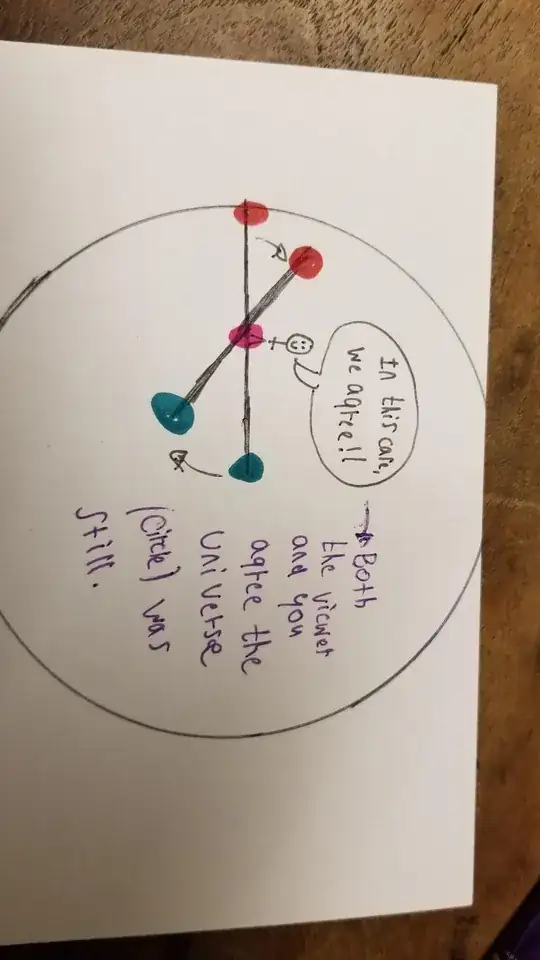 In this care,
we agree!!
→ Both
the viewer
and you
agree the
universe
(circle) was
still.